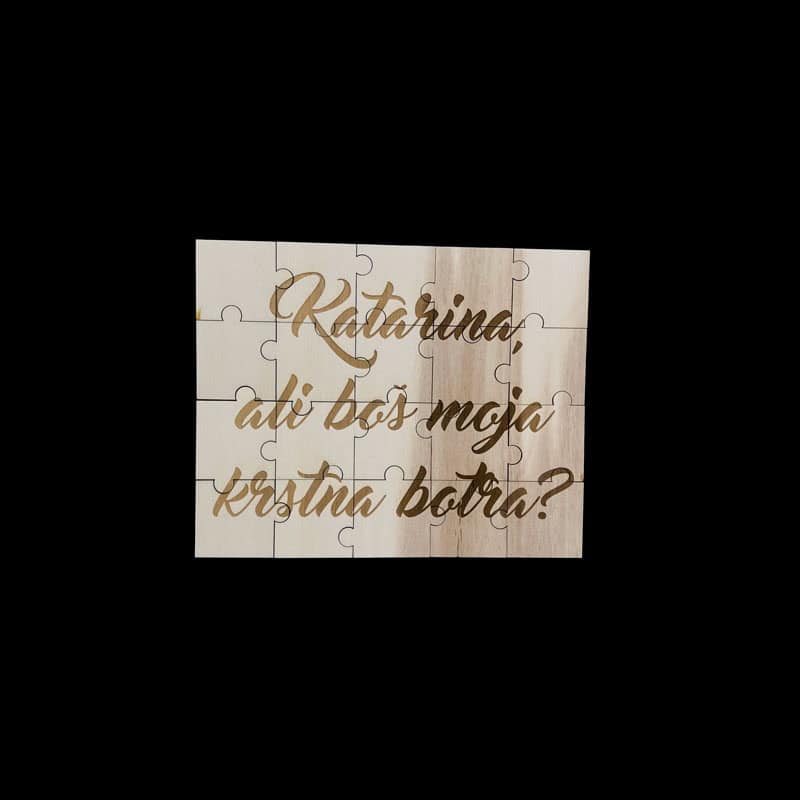 Katarina,
ali boš moja
krstna botra?